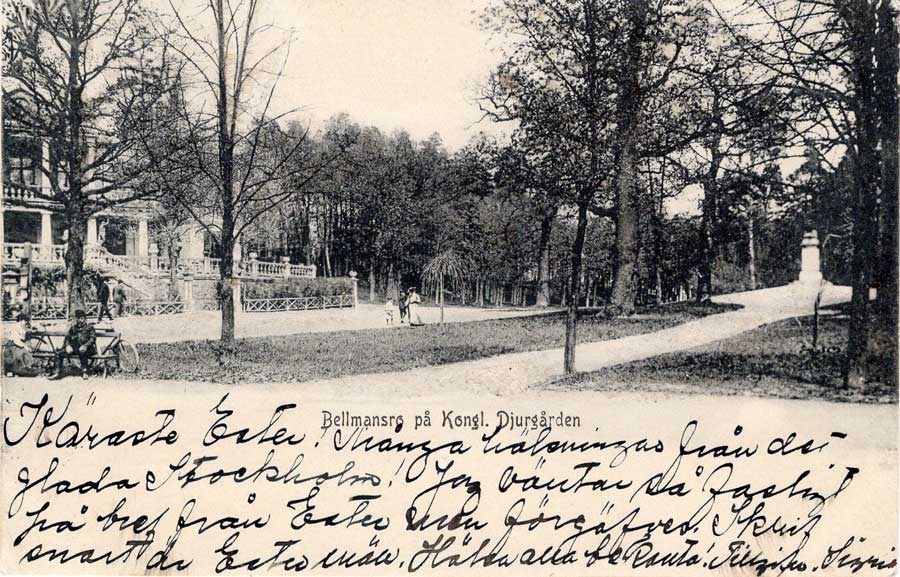 Bellmansro på Kongl. Djurgården
Käraste Ester! Många hälsningar från det
glada Stockholm! Jag väntar så
på bref från Ester men förgäfves. Skrif
snart är Ester snäll. Hälsa alla bekanta!